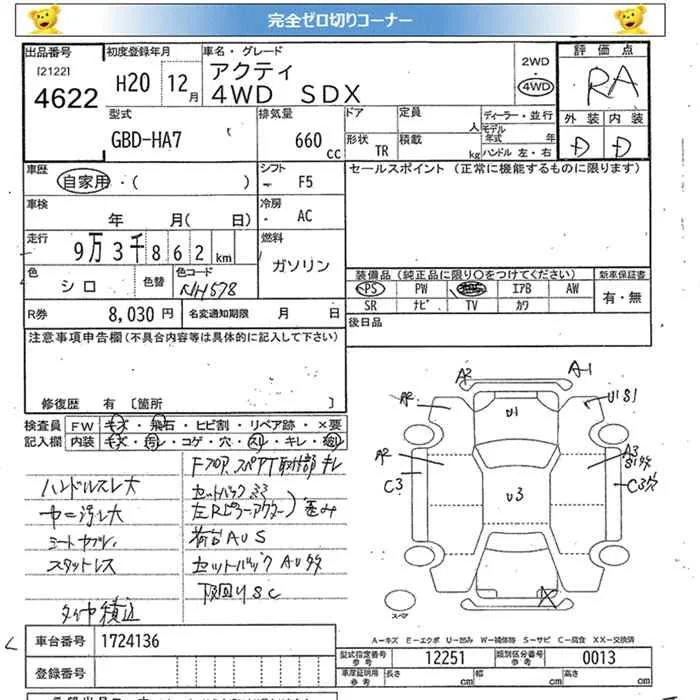 完全ゼロ切りコーナー
出品番号
[2122]
4622
初度登録年月
H20 12月
車名・グレード
アクティ
4WD SDX
2WD
・
4WD
評価点
RA
外装 内装
D D
型式
GBD-HA7
排気量
660 cc
ドア
定員
人
形状
TR
積載
kg
ディーラー・並行
モデル年式 年
ハンドル 左・右
車歴
自家用・( )
シフト
F5
車検
年 月( 日)
冷房
AC
走行
9万3千862km
燃料
ガソリン
色
シロ
色替
色コード
NH578
R券
8,030円
名変通知期限 月 日
セールスポイント(正常に機能するものに限ります)
装備品(純正品に限り〇をつけてください)
新車保証書
PS PW エアB AW
有・無
SR ナビ TV カワ
後日品
注意事項申告欄(不具合内容等は具体的に記入して下さい)
修復歴 有 [箇所 ]
検査員記入欄
FW キズ・飛石・ヒビ割・リペア跡・×要
内装 キズ・汚レ・コゲ・穴・スレ・キレ・
ハンドルスレ大
シートヤブレ
スタットレス
タイヤ積込
荷台AUS
セットバックAU多
下回りSC
A2
A-1
A2
U1
U1S1
A2
A3
C3
U3
C3穴
X
スペア
A-キズ E-エクボ U-凹み W-補修跡 S-サビ C-腐食 XX-交換済
車台番号 1724136
登録番号
型式指定番号 参考 12251
類別区分番号 参考 0013
車庫証明用 参考
長さ cm
幅 cm
高さ cm